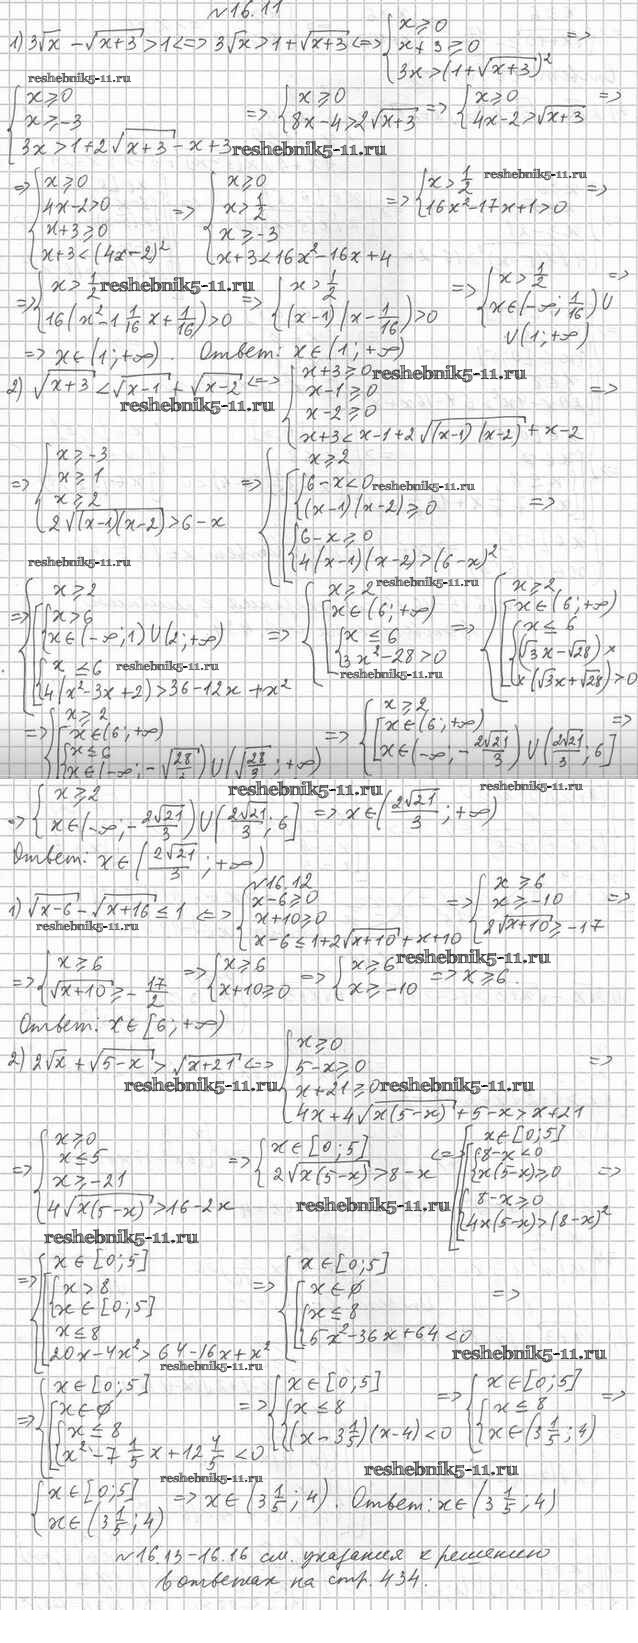 №16.11
1) 3√x - √(x+3) > 1 <=> 3√x > 1 + √(x+3) <=> { x ⩾ 0; x + 3 ⩾ 0; 3x > (1+√(x+3))² =>
reshebnik5-11.ru
{ x ⩾ 0; x ⩾ -3; 3x > 1 + 2√(x+3) - x + 3 => { x ⩾ 0; 8x - 4 > 2√(x+3) => { x ⩾ 0; 4x - 2 > √(x+3) =>
reshebnik5-11.ru
=> { x ⩾ 0; 4x-2>0; x+3 ⩾ 0; x+3 < (4x-2)² => { x ⩾ 0; x > 1/2; x ⩾ -3; x+3 < 16x² - 16x + 4 => { x > 1/2; 16x² - 17x + 1 > 0 =>
reshebnik5-11.ru
=> { x > 1/2; 16(x² - 1 1/16 x + 1/16) > 0 => { x > 1/2; (x-1)(x - 1/16) > 0 => { x > 1/2; x ∈ (-∞; 1/16) ∪ ∪ (1; +∞) =>
reshebnik5-11.ru
=> x ∈ (1; +∞). Ответ: x ∈ (1; +∞)
2) √(x+3) < √(x-1) + √(x-2) <=> { x+3 ⩾ 0; x-1 ⩾ 0; x-2 ⩾ 0; x+3 < x-1+2√((x-1)(x-2)) + x-2 =>
reshebnik5-11.ru
reshebnik5-11.ru
=> { x ⩾ -3; x ⩾ 1; x ⩾ 2; 2√((x-1)(x-2)) > 6-x => { x ⩾ 2; [ { 6-x<0; (x-1)(x-2) ⩾ 0; { 6-x ⩾ 0; 4(x-1)(x-2) > (6-x)² =>
reshebnik5-11.ru
reshebnik5-11.ru
reshebnik5-11.ru
=> { x ⩾ 2; [ { x>6; x ∈ (-∞; 1) ∪ (2; +∞); { x ⩽ 6; 4(x²-3x+2) > 36-12x+x² => { x ⩾ 2; [ x ∈ (6; +∞); { x ⩽ 6; 3x²-28>0 => { x ⩾ 2; [ x ∈ (6; +∞); { x ⩽ 6; (√3x-√28)× ×(√3x+√28)>0
reshebnik5-11.ru
reshebnik5-11.ru
=> { x ⩾ 2; [ x ∈ (6; +∞); { x ⩽ 6; x ∈ (-∞; -√(28/3)) ∪ (√(28/3); +∞) => { x ⩾ 2; [ x ∈ (6; +∞); x ∈ (-∞; -2√21/3) ∪ (2√21/3; 6] =>
reshebnik5-11.ru
reshebnik5-11.ru
=> { x ⩾ 2; x ∈ (-∞; -2√21/3) ∪ (2√21/3; 6] => x ∈ (2√21/3; +∞)
Ответ: x ∈ (2√21/3; +∞)
№16.12
1) √(x-6) - √(x+16) ⩽ 1 <=> { x-6 ⩾ 0; x+10 ⩾ 0; x-6 ⩽ 1+2√(x+10)+x+10 => { x ⩾ 6; x ⩾ -10; 2√(x+10) ⩾ -17 =>
reshebnik5-11.ru
reshebnik5-11.ru
=> { x ⩾ 6; √(x+10) ⩾ -17/2 => { x ⩾ 6; x+10 ⩾ 0 => { x ⩾ 6; x ⩾ -10 => x ⩾ 6.
Ответ: x ∈ [6; +∞)
2) 2√x + √(5-x) > √(x+21) <=> { x ⩾ 0; 5-x ⩾ 0; x+21 ⩾ 0; 4x+4√(x(5-x))+5-x > x+21 =>
reshebnik5-11.ru
reshebnik5-11.ru
=> { x ⩾ 0; x ⩽ 5; x ⩾ -21; 4√(x(5-x)) > 16-2x => { x ∈ [0; 5]; 2√(x(5-x)) > 8-x <=> { x ∈ [0; 5]; [ { 8-x<0; x(5-x) ⩾ 0; { 8-x ⩾ 0; 4x(5-x) > (8-x)² =>
reshebnik5-11.ru
reshebnik5-11.ru
=> { x ∈ [0; 5]; [ { x>8; x ∈ [0; 5]; { x ⩽ 8; 20x-4x² > 64-16x+x² => { x ∈ [0; 5]; [ x ∈ ∅; { x ⩽ 8; 5x²-36x+64<0 =>
reshebnik5-11.ru
reshebnik5-11.ru
=> { x ∈ [0; 5]; [ x ∈ ∅; { x ⩽ 8; x²-7 1/5 x+12 4/5 <0 => { x ∈ [0; 5]; { x ⩽ 8; (x-3 1/5)(x-4)<0 => { x ∈ [0; 5]; { x ⩽ 8; x ∈ (3 1/5; 4) =>
reshebnik5-11.ru
reshebnik5-11.ru
{ x ∈ [0; 5]; x ∈ (3 1/5; 4) => x ∈ (3 1/5; 4). Ответ: x ∈ (3 1/5; 4)
№16.13-16.16 см. указания к решению
в ответах на стр. 434.